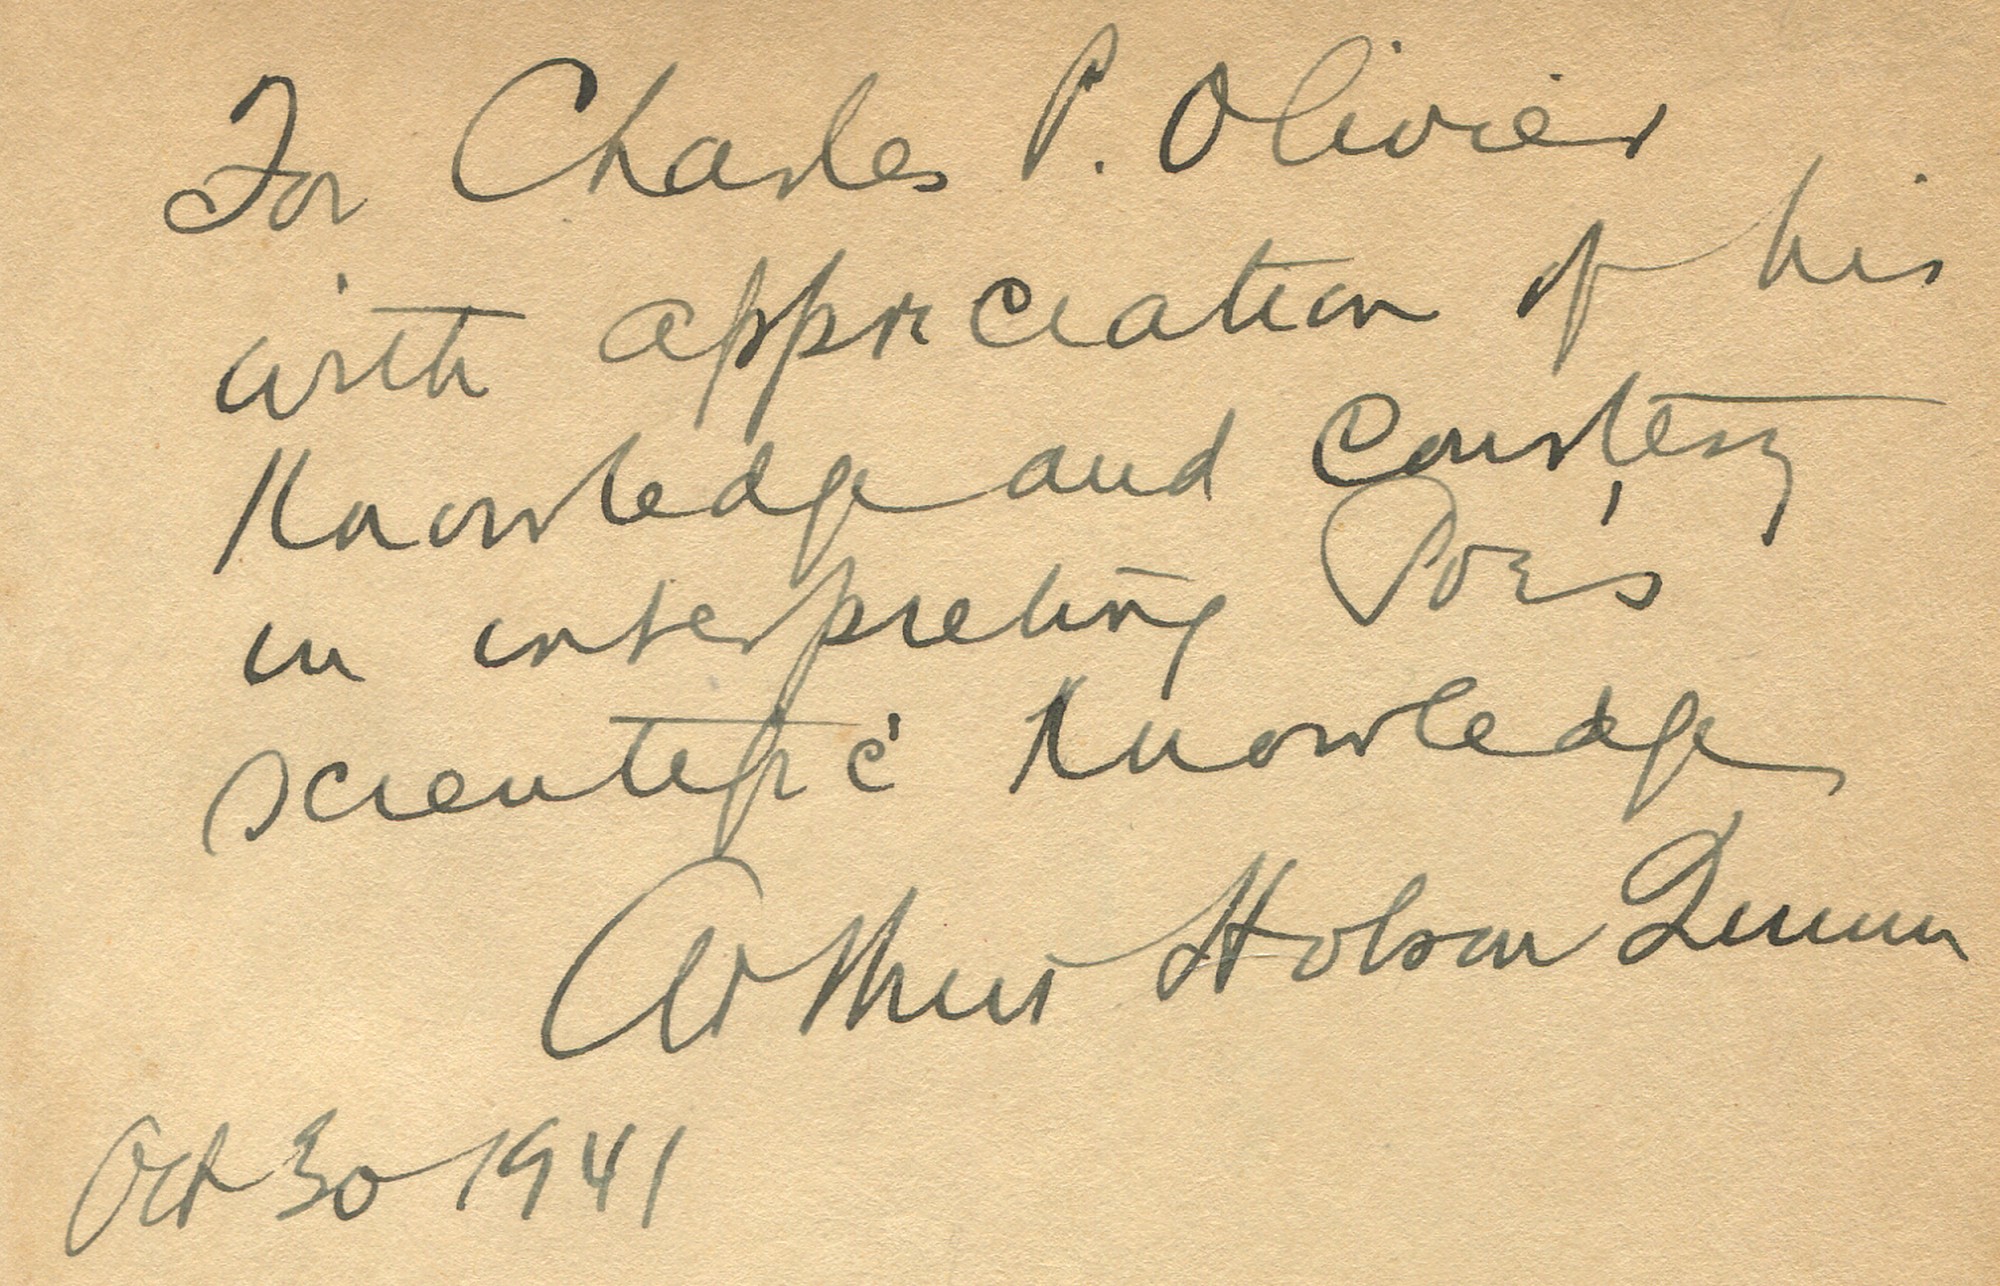 For Charles P. Olivier
with appreciation of his
Knowledge and Courtesy
in interpreting Poe's
scientific Knowledge
Arthur Hobson Quinn
Oct 30 1941